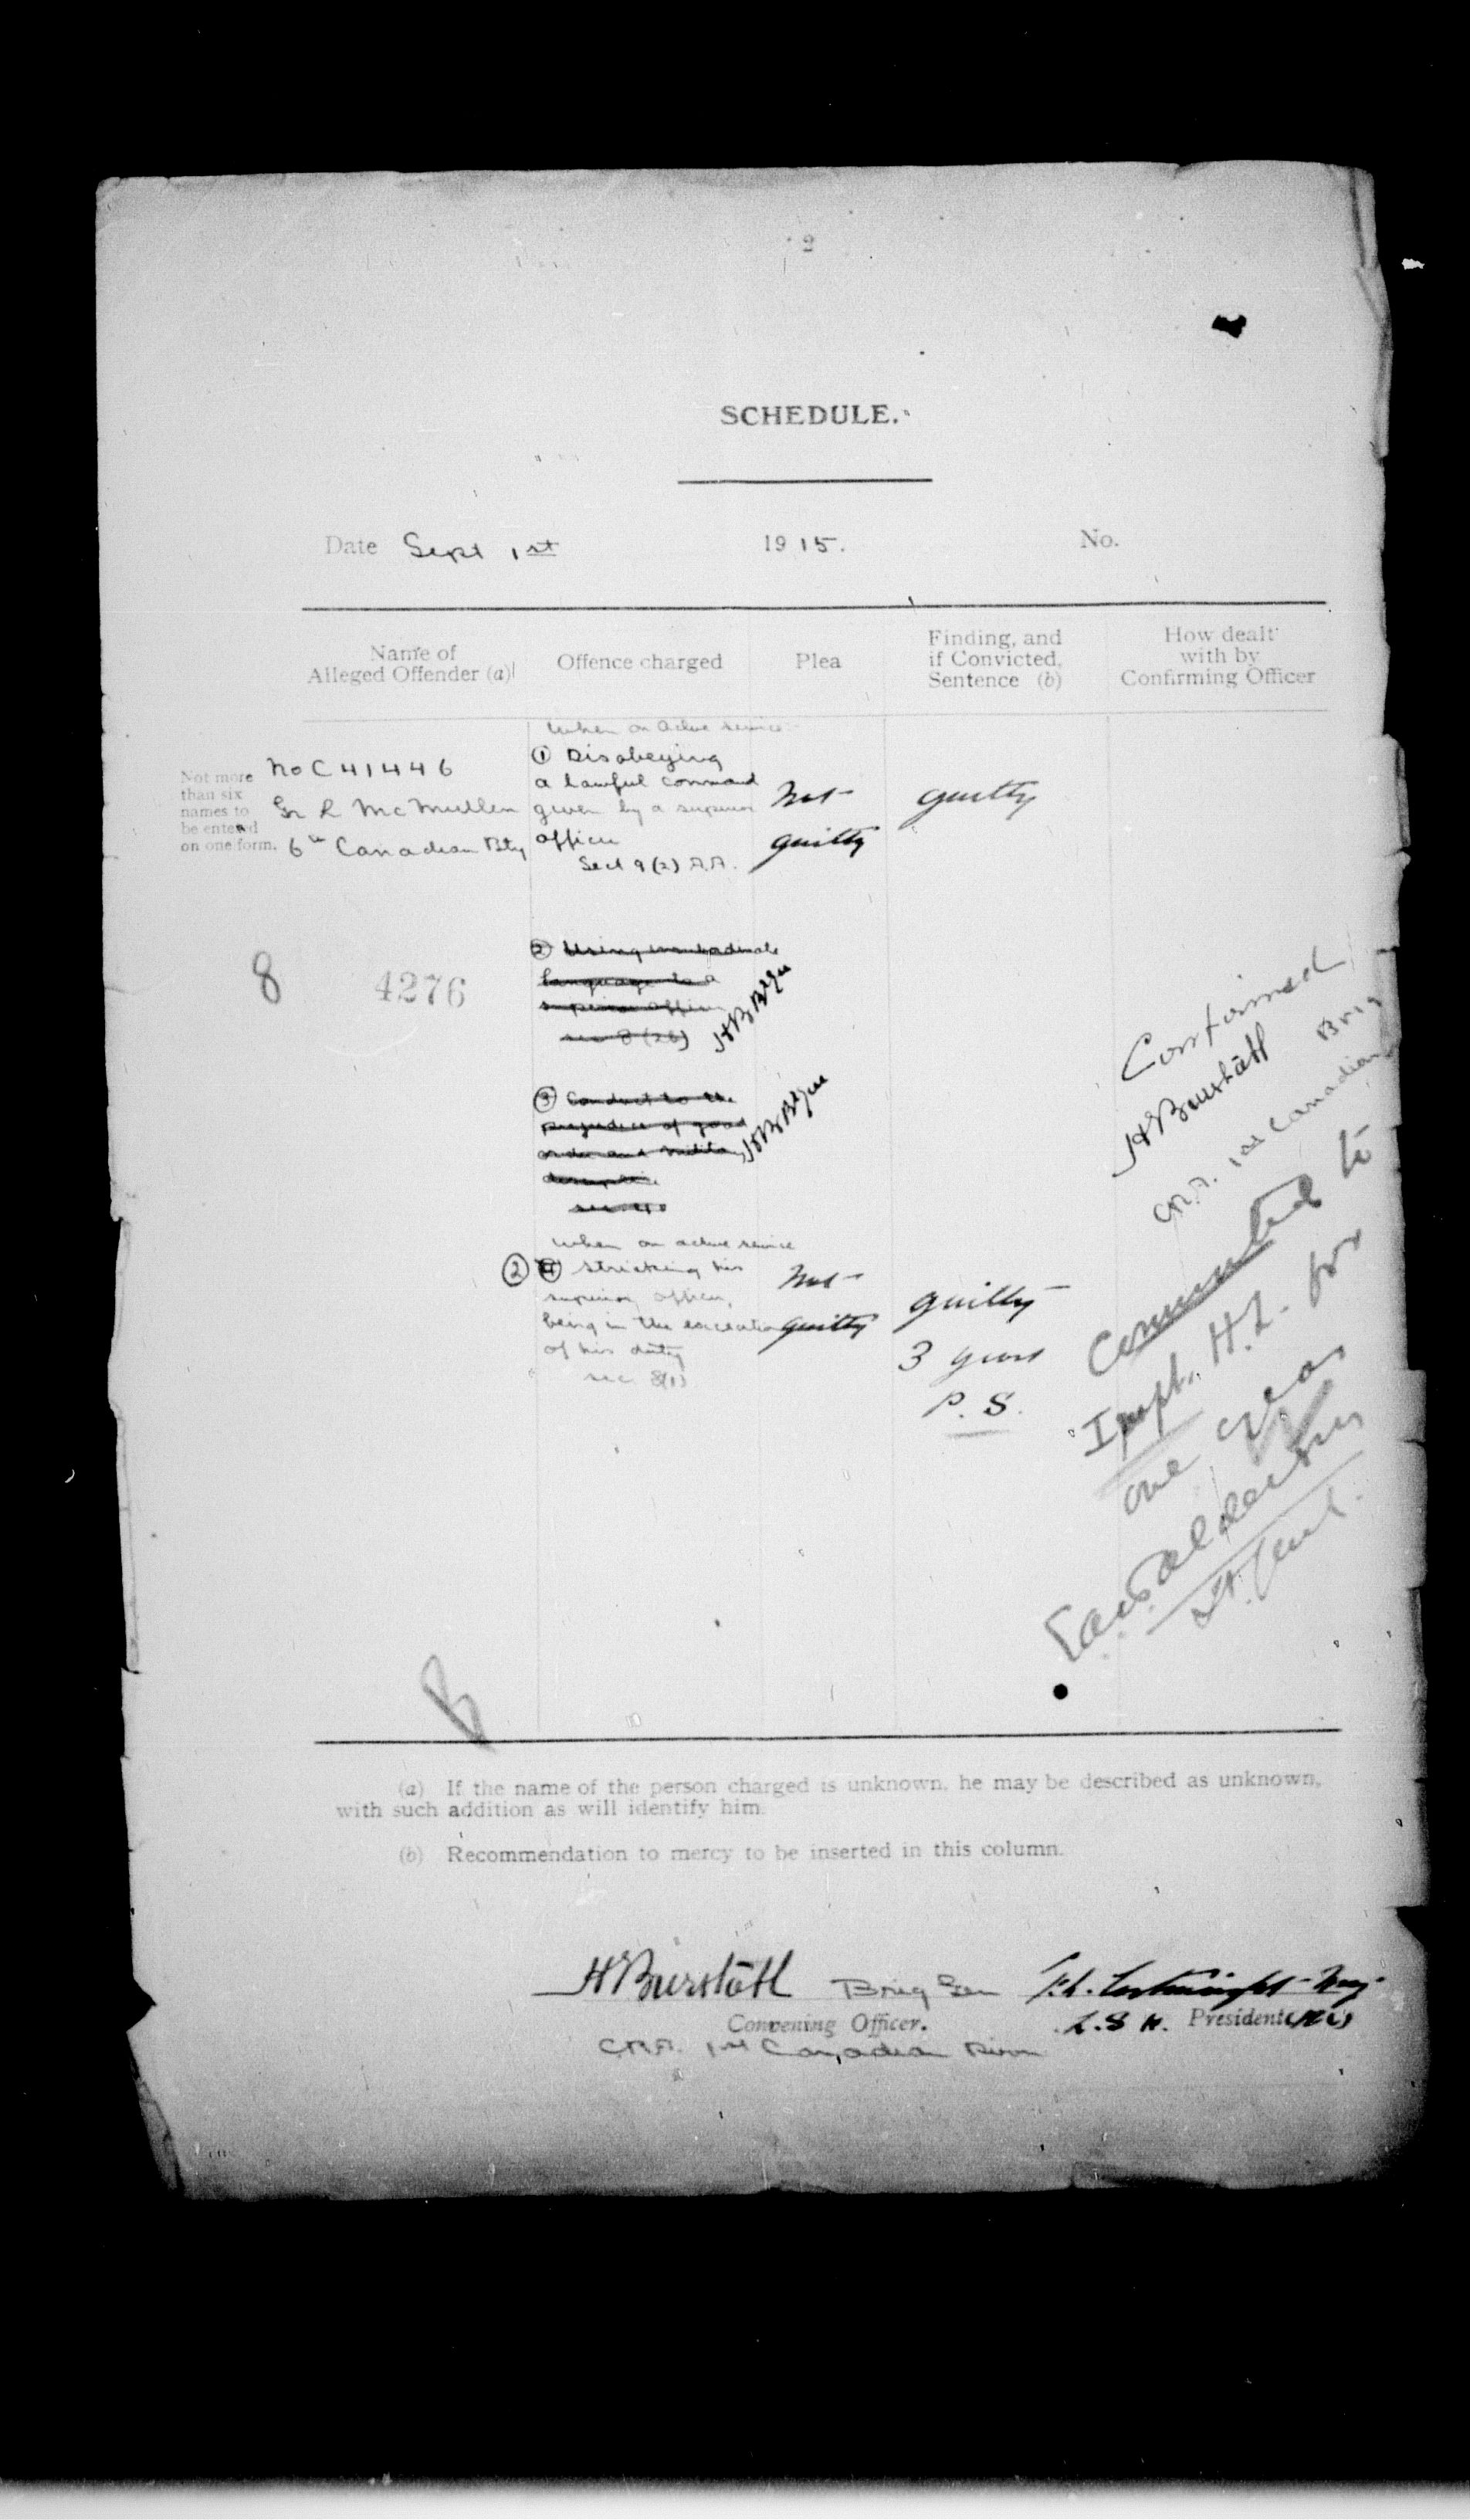 2
SCHEDULE.
Date Sept 1st 1915. No.
Name of Alleged Offender (a)
Offence charged
Plea
Finding, and if Convicted, Sentence (b)
How dealt with by Confirming Officer
Not more
than six
names to
be entered
on one form.
No C 41446
Gr R McMullen
6th Canadian Bty
When on Active Service
① Disobeying
a lawful command
given by a superior
officer
Sect 9 (2) A.A.
Not
guilty
guilty
8
4276
② Using insubordinate
language to a
superior officer
sec 8 (2b)
HB B'Gen
③ Conduct to the
prejudice of good
order and military
discipline
sec. 40
HB B'Gen
When on active service
② ④ Striking his
superior officer,
being in the execution
of his duty
sec 8(1)
Not
guilty
guilty
3 years
P. S.
Confirmed
HBurstall
Brig
C.R.A. 1st Canadian
Commuted to
Impt. H.L. for
one year
(a) If the name of the person charged is unknown, he may be described as unknown,
with such addition as will identify him.
(b) Recommendation to mercy to be inserted in this column.
HBurstall Brig Gen
Convening Officer.
C.R.A. 1st Canadian Divn
Cartwright Maj
L.S.H. President